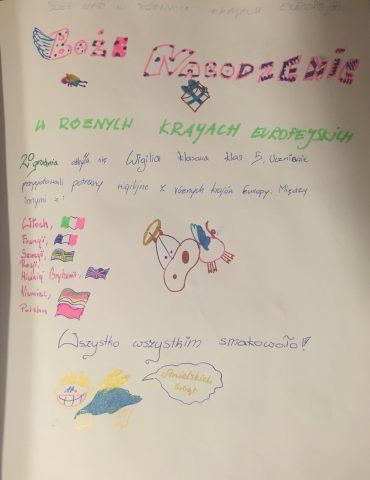 BOŻE
NARODZENIE
W RÓŻNYCH KRAJACH EUROPEJSKICH
20 grudnia odbyła się Wigilia klasowa klas 5. Uczniowie
przygotowali potrawy wigilijne z różnych krajów Europy. Między
innymi z:
Włoch,
Francji,
Szwecji,
Rosji,
Wielkiej Brytanii,
Niemiec,
Polska
Wszystko wszystkim smakowało!
Anielskich
świąt